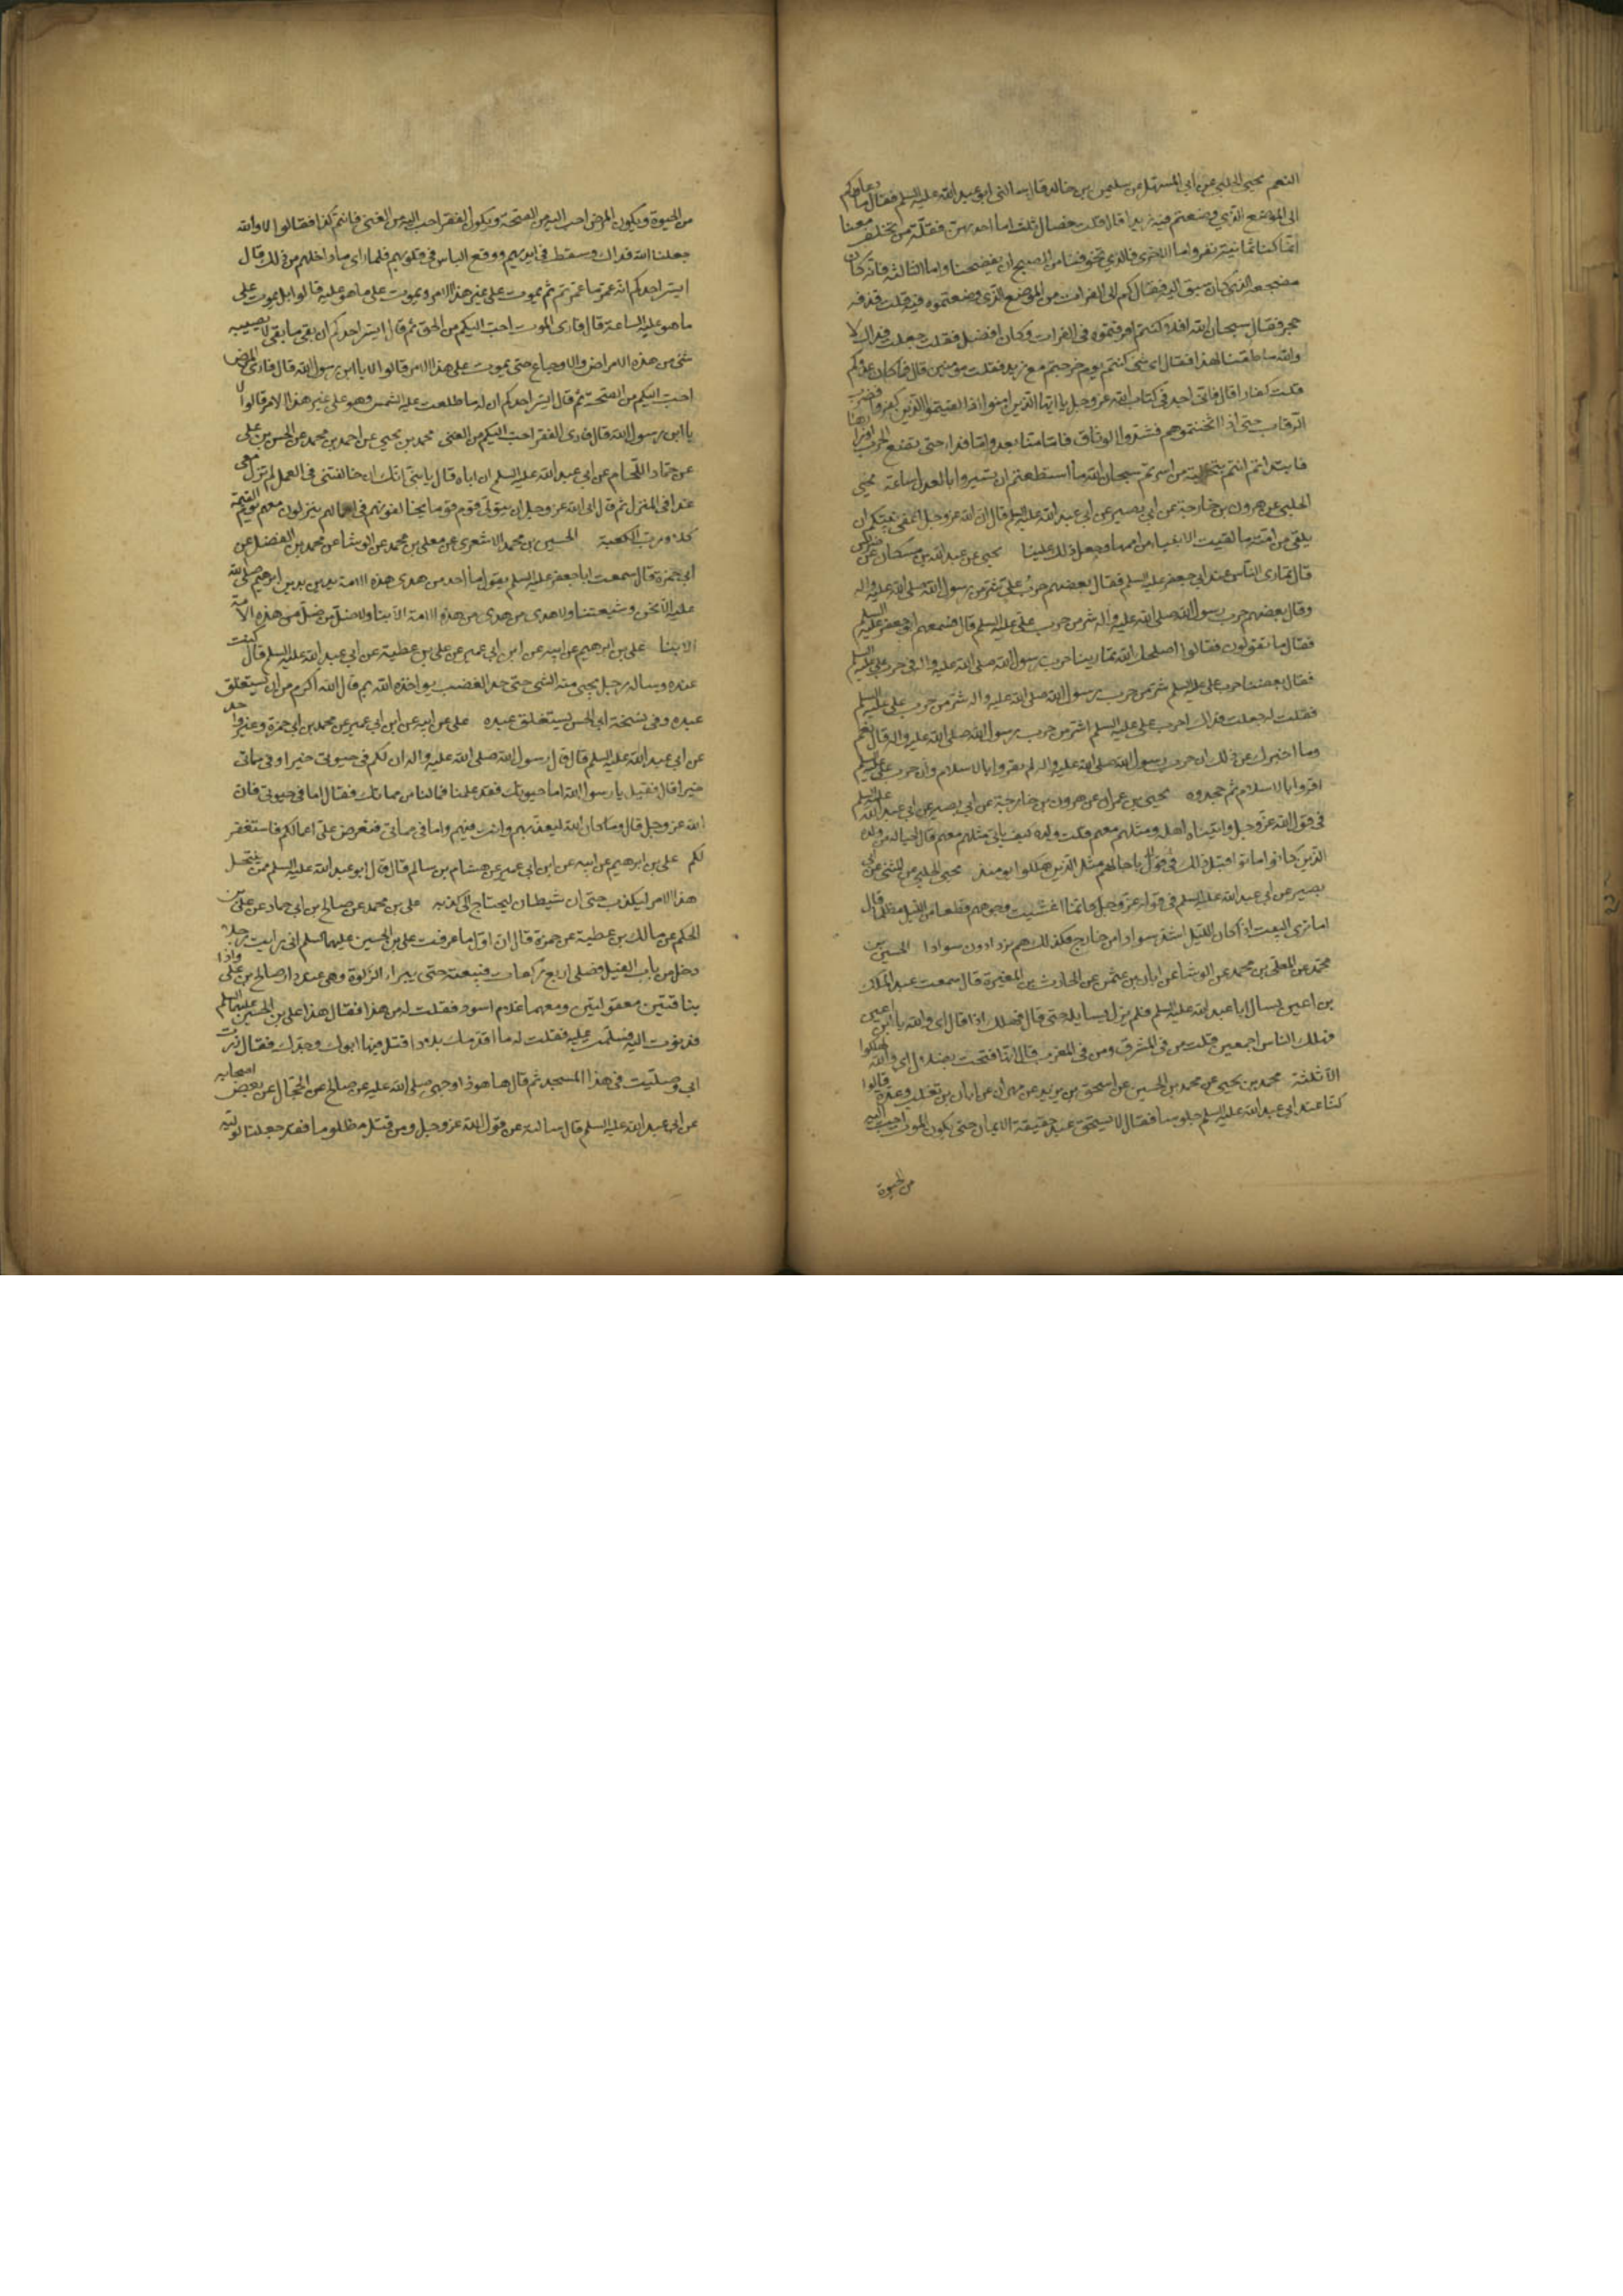 النعم يحيى الحلبي عن ابي المستهل عن سليمن بن خالد قال سالني ابو عبد الله عليه السلم فقال ما دعاكم
الى الموضع الذي وضعتم فيه زيدا قال قلت خصال ثلث اما احديهن فقلة من تخلف معنا
انما كنا ثمانية نفر واما الاخرى فالذي تخوفنا من الصبح ان يفضحنا واما الثالثة فانه كان
مضجعه الذي كان سبق اليه فقال كم الى الفرات من الموضع الذي وضعتموه فيه قلت قذفه
حجر فقال سبحان الله افلا كنتم اوقرتموه في الفرات وكان افضل فقلت جعلت فداك لا
والله ما طقنا لهذا فقال اي شئ كنتم يوم خرجتم مع زيد فقلت مؤمنين قال فما كان عدوكم
قلت كفارا قال فاني اجد في كتاب الله عز وجل يا ايها الذين امنوا اذا لقيتم الذين كفروا فضرب
الرقاب حتى اذا اثخنتموهم فشدوا الوثاق فاما منا بعد واما فداء حتى تضع الحرب اوزارها
فابتداتم انتم بتخلية من اسرتم سبحان الله ما استطعتم ان تسيروا بالعدل ساعة يحيى
الحلبي عن هرون بن خارجة عن ابي بصير عن ابي عبد الله عليه السلم قال ان الله عز وجل اعفى نبيكم ان
يلقى من امته ما لقيت الانبياء من اممها وجعل ذلك علينا يحيى عن عبد الله بن مسكان عن ضريس
قال تمارى الناس عند ابي جعفر عليه السلم فقال بعضهم حرب علي شر من رسول الله صلى الله عليه واله
وقال بعضهم حرب رسول الله صلى الله عليه واله شر من حرب علي عليه السلم قال فسمعهم ابو جعفر عليه السلم
فقال ما تقولون فقالوا اصلحك الله تمارينا حرب رسول الله صلى الله عليه واله وفي حرب علي عليه السلم
فقال بعضنا حرب علي عليه السلم شر من حرب رسول الله صلى الله عليه واله شر من حرب علي عليه السلم
فقلت له جعلت فداك احرب علي عليه السلم اشر من حرب رسول الله صلى الله عليه واله قال نعم
وسا اخبرك عن ذلك ان حرب رسول الله صلى الله عليه واله لم يقروا بالاسلام وان حرب علي عليه السلم
اقروا بالاسلام ثم جحدوه يحيى بن عمران عن هرون بن خارجة عن ابي بصير عن ابي عبد الله عليه السلم
في قول الله عز وجل واتيناه اهله ومثلهم معهم قلت ولده كيف ياتي مثلهم معهم قال احيا له من ولده
الذين كانوا ماتوا قبل ذلك باجالهم مثل الذين هلكوا يومئذ يحيى الحلبي عن المثنى عن ابي
بصير عن ابي عبد الله عليه السلم في قوله عز وجل كانما اغشيت وجوههم قطعا من الليل مظلما قال
اما ترى البيت اذا كان الليل اشد سوادا من خارج فكذلك هم يزدادون سوادا الحسين بن
محمد عن المعلى بن محمد عن الوشا عن ابان بن عثمن عن الحارث بن المغيرة قال سمعت عبد الملك
بن اعين يسال ابا عبد الله عليه السلم فلم يزل يسايله حتى قال فهلك اذا قال اي والله يا ابن اعين
فهلك الناس اجمعين قلت من في المشرق ومن في المغرب قال انها فتحت بضلال اي والله لهلكوا
الا ثلثة محمد بن يحيى عن محمد بن الحسين عن اسحق بن يزيد عن مهران عن ابان بن تغلب وعدة قالوا
كنا عند ابي عبد الله عليه السلم جلوسا فقال لا يستحق عبد حقيقة الايمان حتى يكون الموت احب اليه
من الحيوة
من الحيوة ويكون المرض احب اليه من الصحة ويكون الفقر احب اليه من الغنى فانتم كذا فقالوا لا والله
جعلنا الله فداك وسقط في ايديهم ووقع الياس في قلوبهم فلما راى ما داخلهم من ذلك قال
ايسر احدكم انه عمر ما عمر ثم يموت على غير هذا الامر او يموت على ما هو عليه قالوا بل يموت على
ما هو عليه الساعة قال فارى الموت احب اليكم من الحيوة ثم قال ايسر احدكم ان بقى ما بقى لا يصيبه
شئ من هذه الامراض والاوجاع حتى يموت على هذا الامر قالوا لا يا ابن رسول الله قال فارى المرض
احب اليكم من الصحة ثم قال ايسر احدكم ان له ما طلعت عليه الشمس وهو على غير هذا الامر قالوا لا
يا ابن رسول الله قال فارى الفقر احب اليكم من الغنى محمد بن يحيى عن احمد بن محمد عن الحسن بن علي
عن حماد اللحام عن ابي عبد الله عليه السلم ان اباه قال يا بني انك ان خالفتني في العمل لم تنزل معي
غدا في المنزل ثم قال ابى الله عز وجل ان يتولى قوم قوما يخالفونهم في اعمالهم ينزلون معهم يوم القيمة
كلا ورب الكعبة الحسين بن محمد الاشعري عن معلى بن محمد عن الوشا عن محمد بن الفضيل عن
ابي حمزة قال سمعت ابا جعفر عليه السلم يقول ما احد من هذه الامة يدين بدين ابرهيم صلى الله
عليه الا نحن وشيعتنا ولا هدى من هدى من هذه الامة الا بنا ولا ضل من ضل من هذه الامة
الا بنا علي بن ابرهيم عن ابيه عن ابن ابي عمير عن علي بن عطية عن ابي عبد الله عليه السلم قال كنت
عنده وساله رجل يجئ منه الشئ حتى حد الغضب يواخذه الله به قال الله اكرم من ان يستغلق
عبده وفي نسخة ابي الحسن يستقلق عبده علي عن ابيه عن ابن ابي عمير عن محمد بن ابي حمزة وغير واحد
عن ابي عبد الله عليه السلم قال قال رسول الله صلى الله عليه واله ان لكم في حيوتي خيرا وفي مماتي
خيرا قال فقيل يا رسول الله اما حيوتك فقد علمنا فما لنا من مماتك فقال اما في حيوتي فان
الله عز وجل قال وما كان الله ليعذبهم وانت فيهم واما في مماتي فتعرض على اعمالكم فاستغفر
لكم علي بن ابرهيم عن ابيه عن ابن ابي عمير عن هشام بن سالم قال قال ابو عبد الله عليه السلم ممن ينتحل
هذا الامر ليكذب حتى ان شيطان ليحتاج الى كذبه علي بن محمد عن صالح بن ابي حماد عن علي بن
الحكم عن مالك بن عطية عن حمزة قال ان اول ما عرفت علي بن الحسين عليهما السلم اني رايت رجلا
دخل من باب الفيل فصلى اربع ركعات فتبعته حتى بير الزكوة وهي عند دار صالح بن علي واذا
بناقتين معقولتين ومعهما غلام اسود فقلت له من هذا فقال هذا علي بن الحسين عليهما السلم
فدنوت اليه فسلمت عليه فقلت له ما اقدمك بلادا قتل فيها ابوك وجدك فقال زرت
ابي وصليت في هذا المسجد ثم قال ها هوذا وجهي صلى الله عليه عن صالح عن الحجال عن بعض اصحابه
عن ابي عبد الله عليه السلم قال سالته عن قول الله عز وجل ومن قتل مظلوما فقد جعلنا لوليه